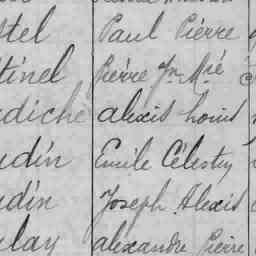 stel Paul Pierre
tinel Pierre Jn Mré
ediche alexis Louis
udin Emile Célestin
udin Joseph Alexis
ulay alexandre Pierre